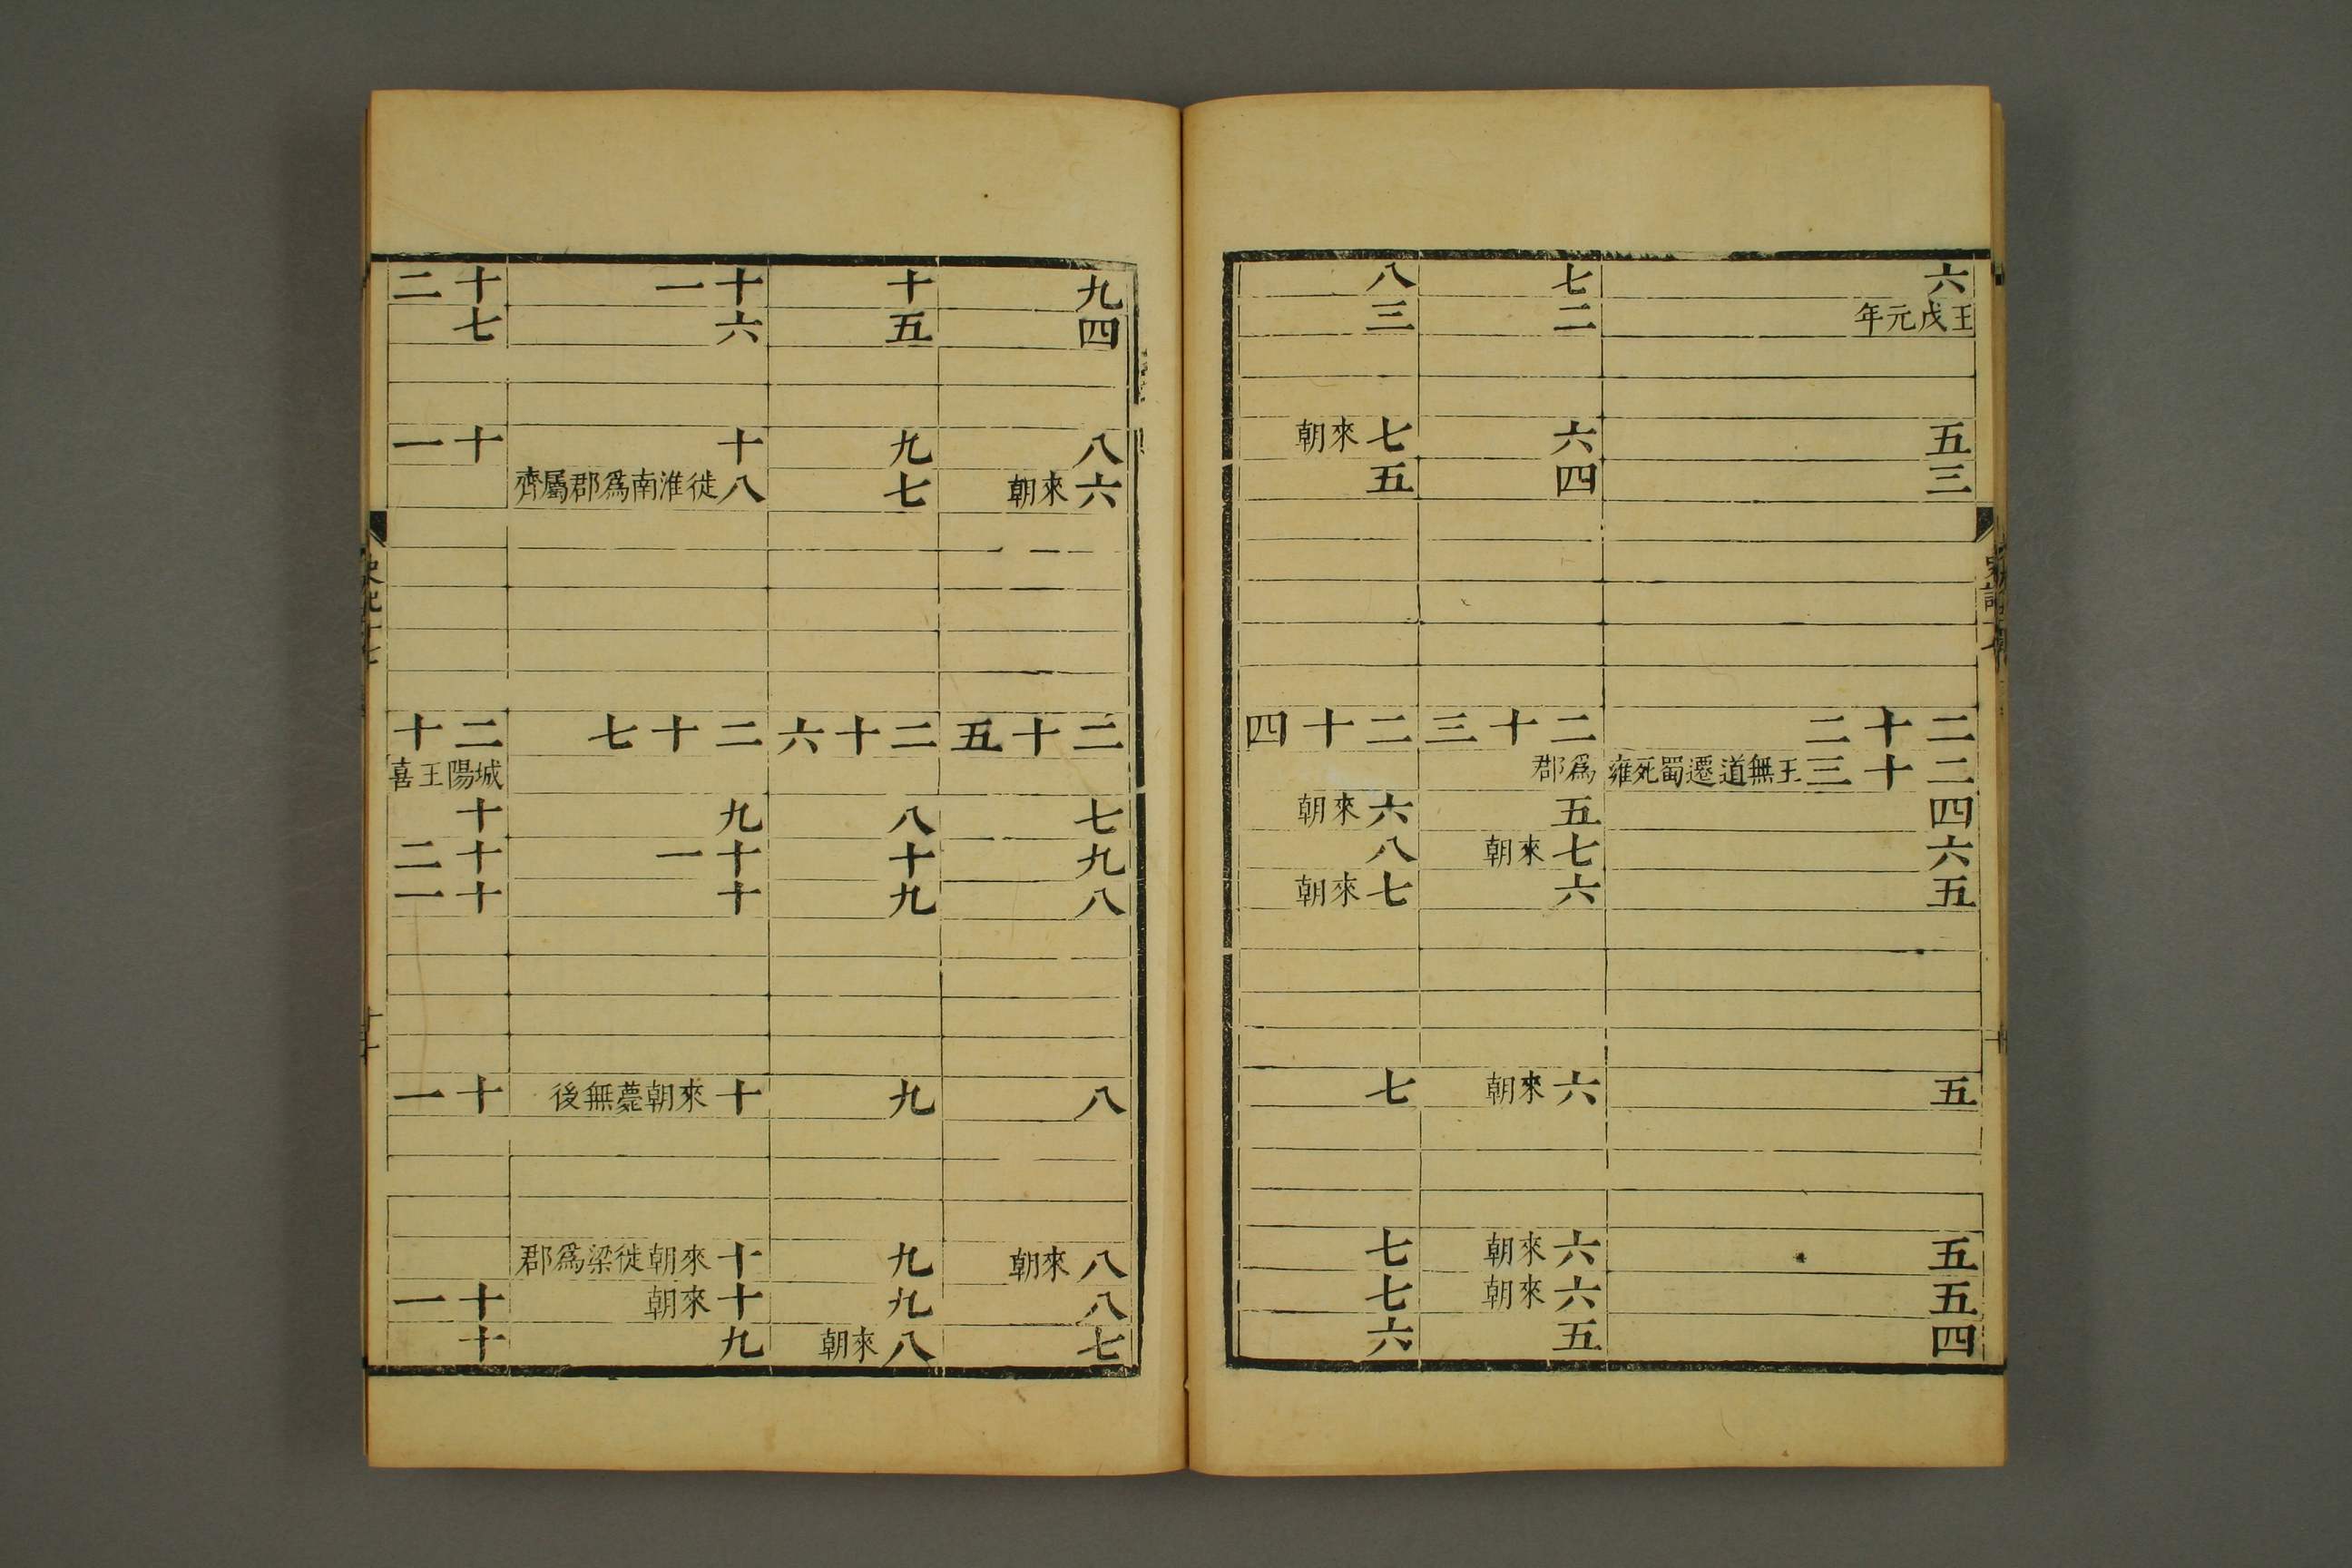 六
王戊元年
五
三
二十二
二十三王無道遷蜀死雍爲郡
四
六
五
五
五
五
四
七
二
六
四
二十三
五
七來朝
六
六來朝
六來朝
六來朝
五
八
三
七來朝
五
二十四
六來朝
八
七來朝
七
七
七
六
九
四
八
六來朝
二十五
七
九
八
八
八來朝
八
七
十
五
九
七
二十六
八
十
九
九
九
九
八來朝
十一
六
十
八徙淮南爲郡屬齊
二十七
九
十一
十
十來朝薨無後
十來朝徙梁爲郡
十來朝
九
十二
七
十一
二十
城陽王喜
十
十二
十一
十一
十一
十